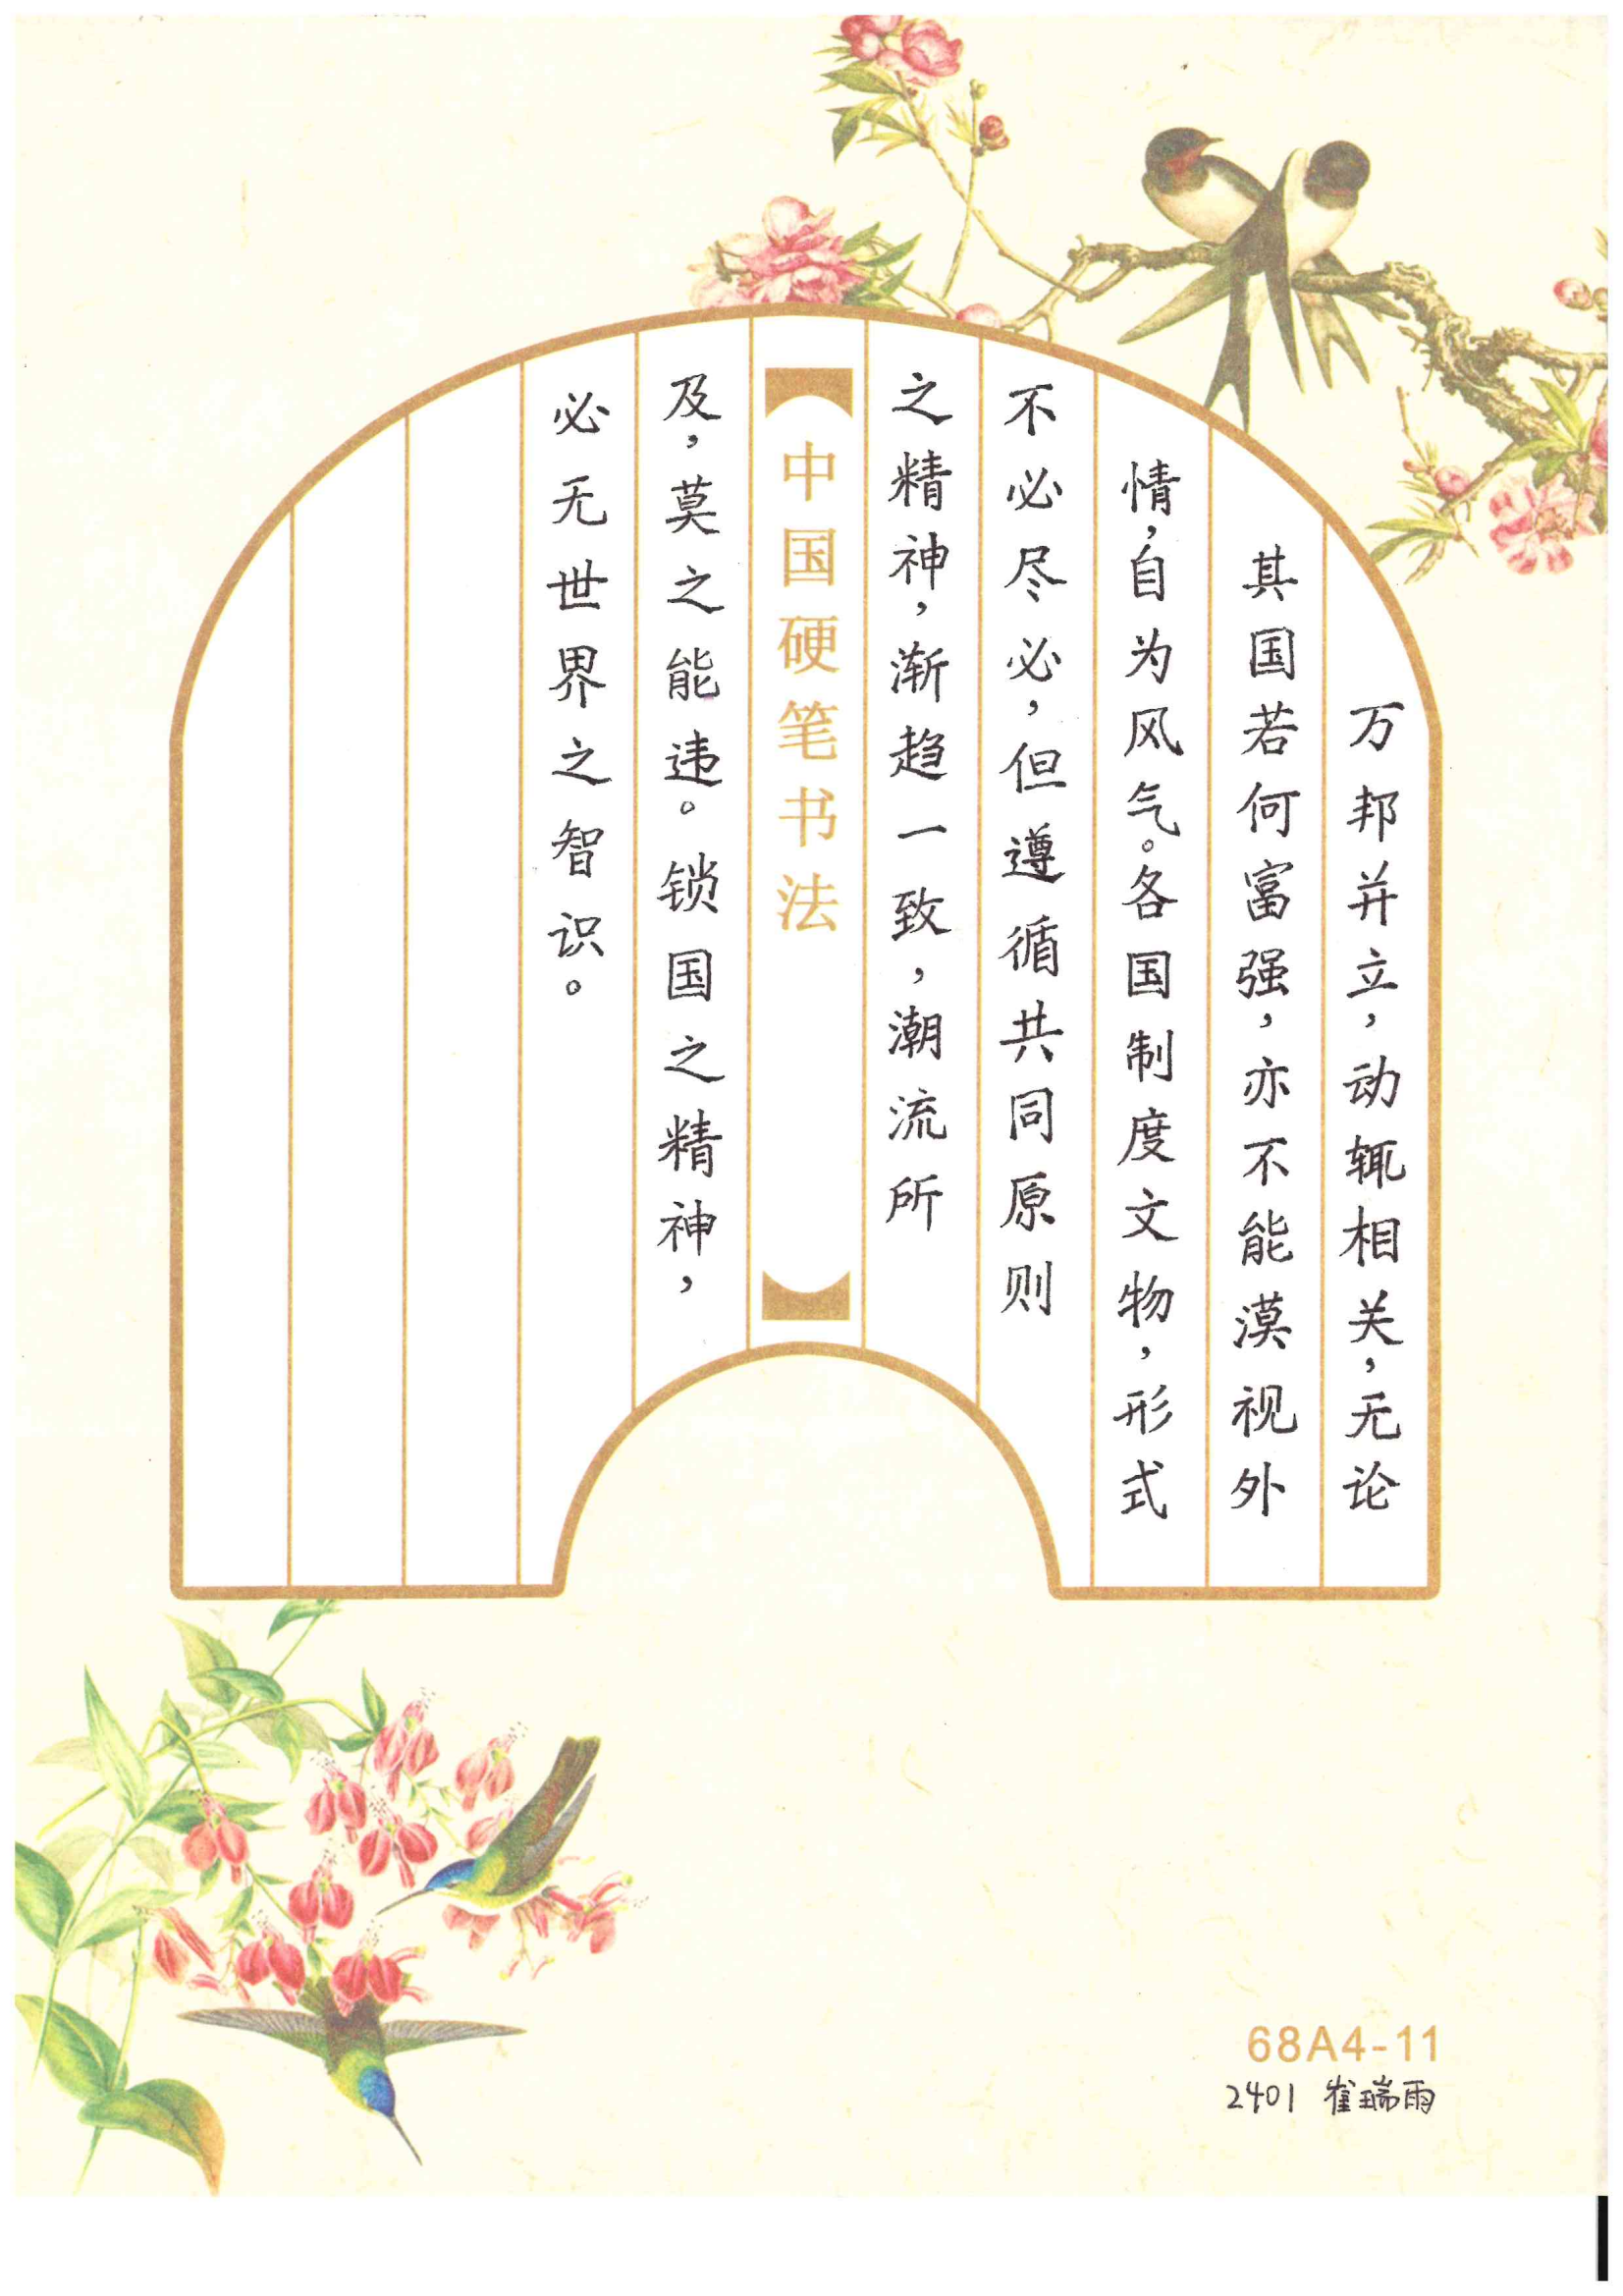 万邦并立，动辄相关，无论
其国若何富强，亦不能漠视外
情，自为风气。各国制度文物，形式
不必尽必，但遵循共同原则
之精神，渐趋一致，潮流所
中国硬笔书法
及，莫之能违。锁国之精神，
必无世界之智识。
68A4-11
2401 崔瑞雨